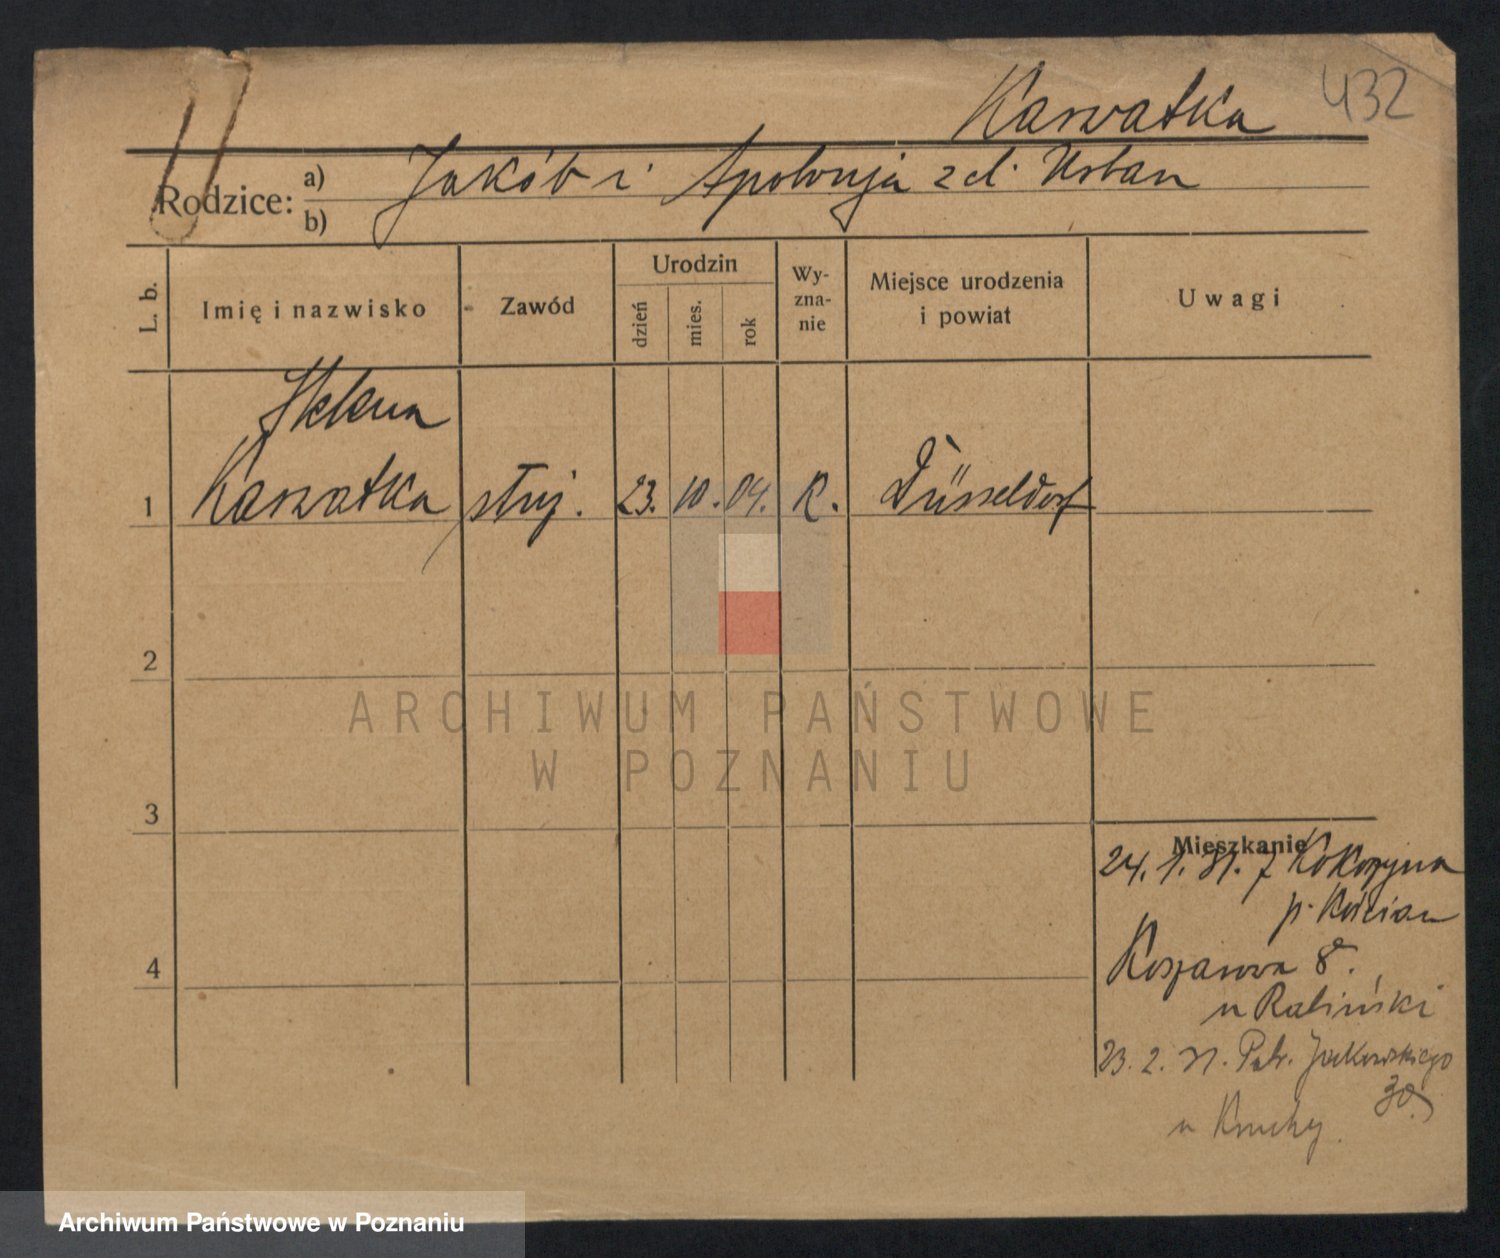 Karwatka 432
Rodzice: a) Jakób i Apolonja z d. Urban
b)
L. b. Imię i nazwisko Zawód Urodzin dzień mies. rok Wy-zna-nie Miejsce urodzenia i powiat Uwagi
Helena
1 Karwatka służ. 23. 10. 04. K. Düsseldorf
2
ARCHIWUM PAŃSTWOWE
W POZNANIU
3
Mieszkanie
24. 1. 31. z Kokorzyna
p. Kościan
8.
u Raliński
23. 2. 31. Jackowskiego
30
4
u
Archiwum Państwowe w Poznaniu